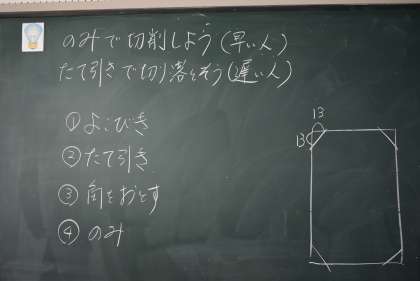 のみで切削しよう(早い人)
たて引きで切り落とそう(遅い人)
①よこびき
②たて引き
③角をおとす
④のみ
13
13